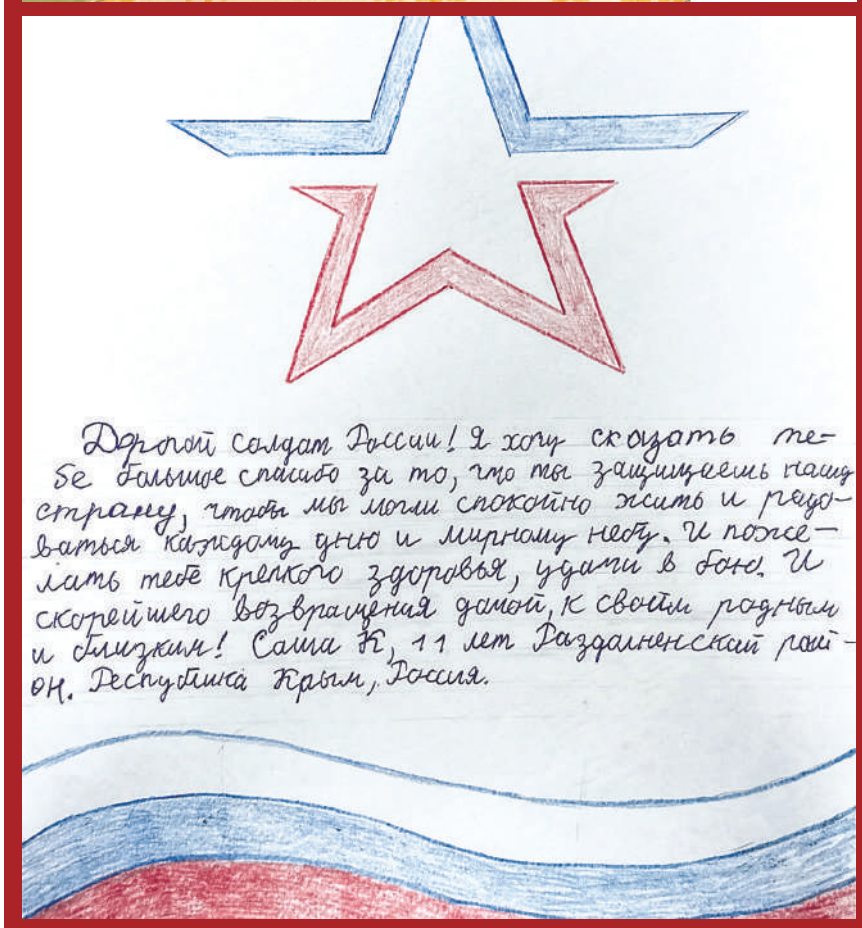 Дорогой солдат России! Я хочу сказать те-
бе большое спасибо за то, что ты защищаешь нашу
страну, чтобы мы могли спокойно жить и радо-
ваться каждому дню и мирному небу. И поже-
лать тебе крепкого здоровья, удачи в бою. И
скорейшего возвращения домой, к своим родным
и близким! Саша К, 11 лет Раздолненский рай-
он. Республика Крым, Россия.